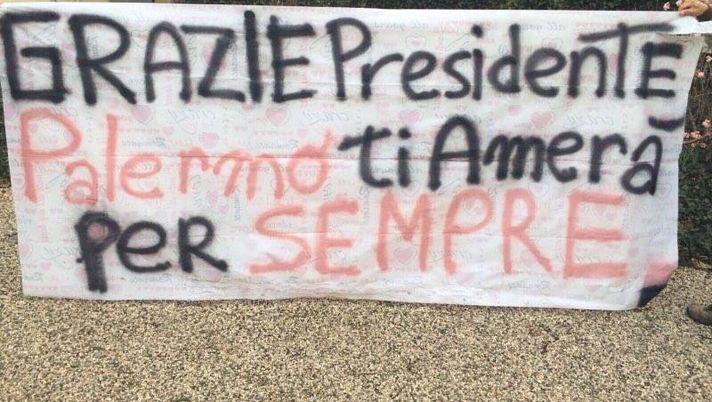 GRAZIE Presidente
Palermo ti Amerà
per SEMPRE